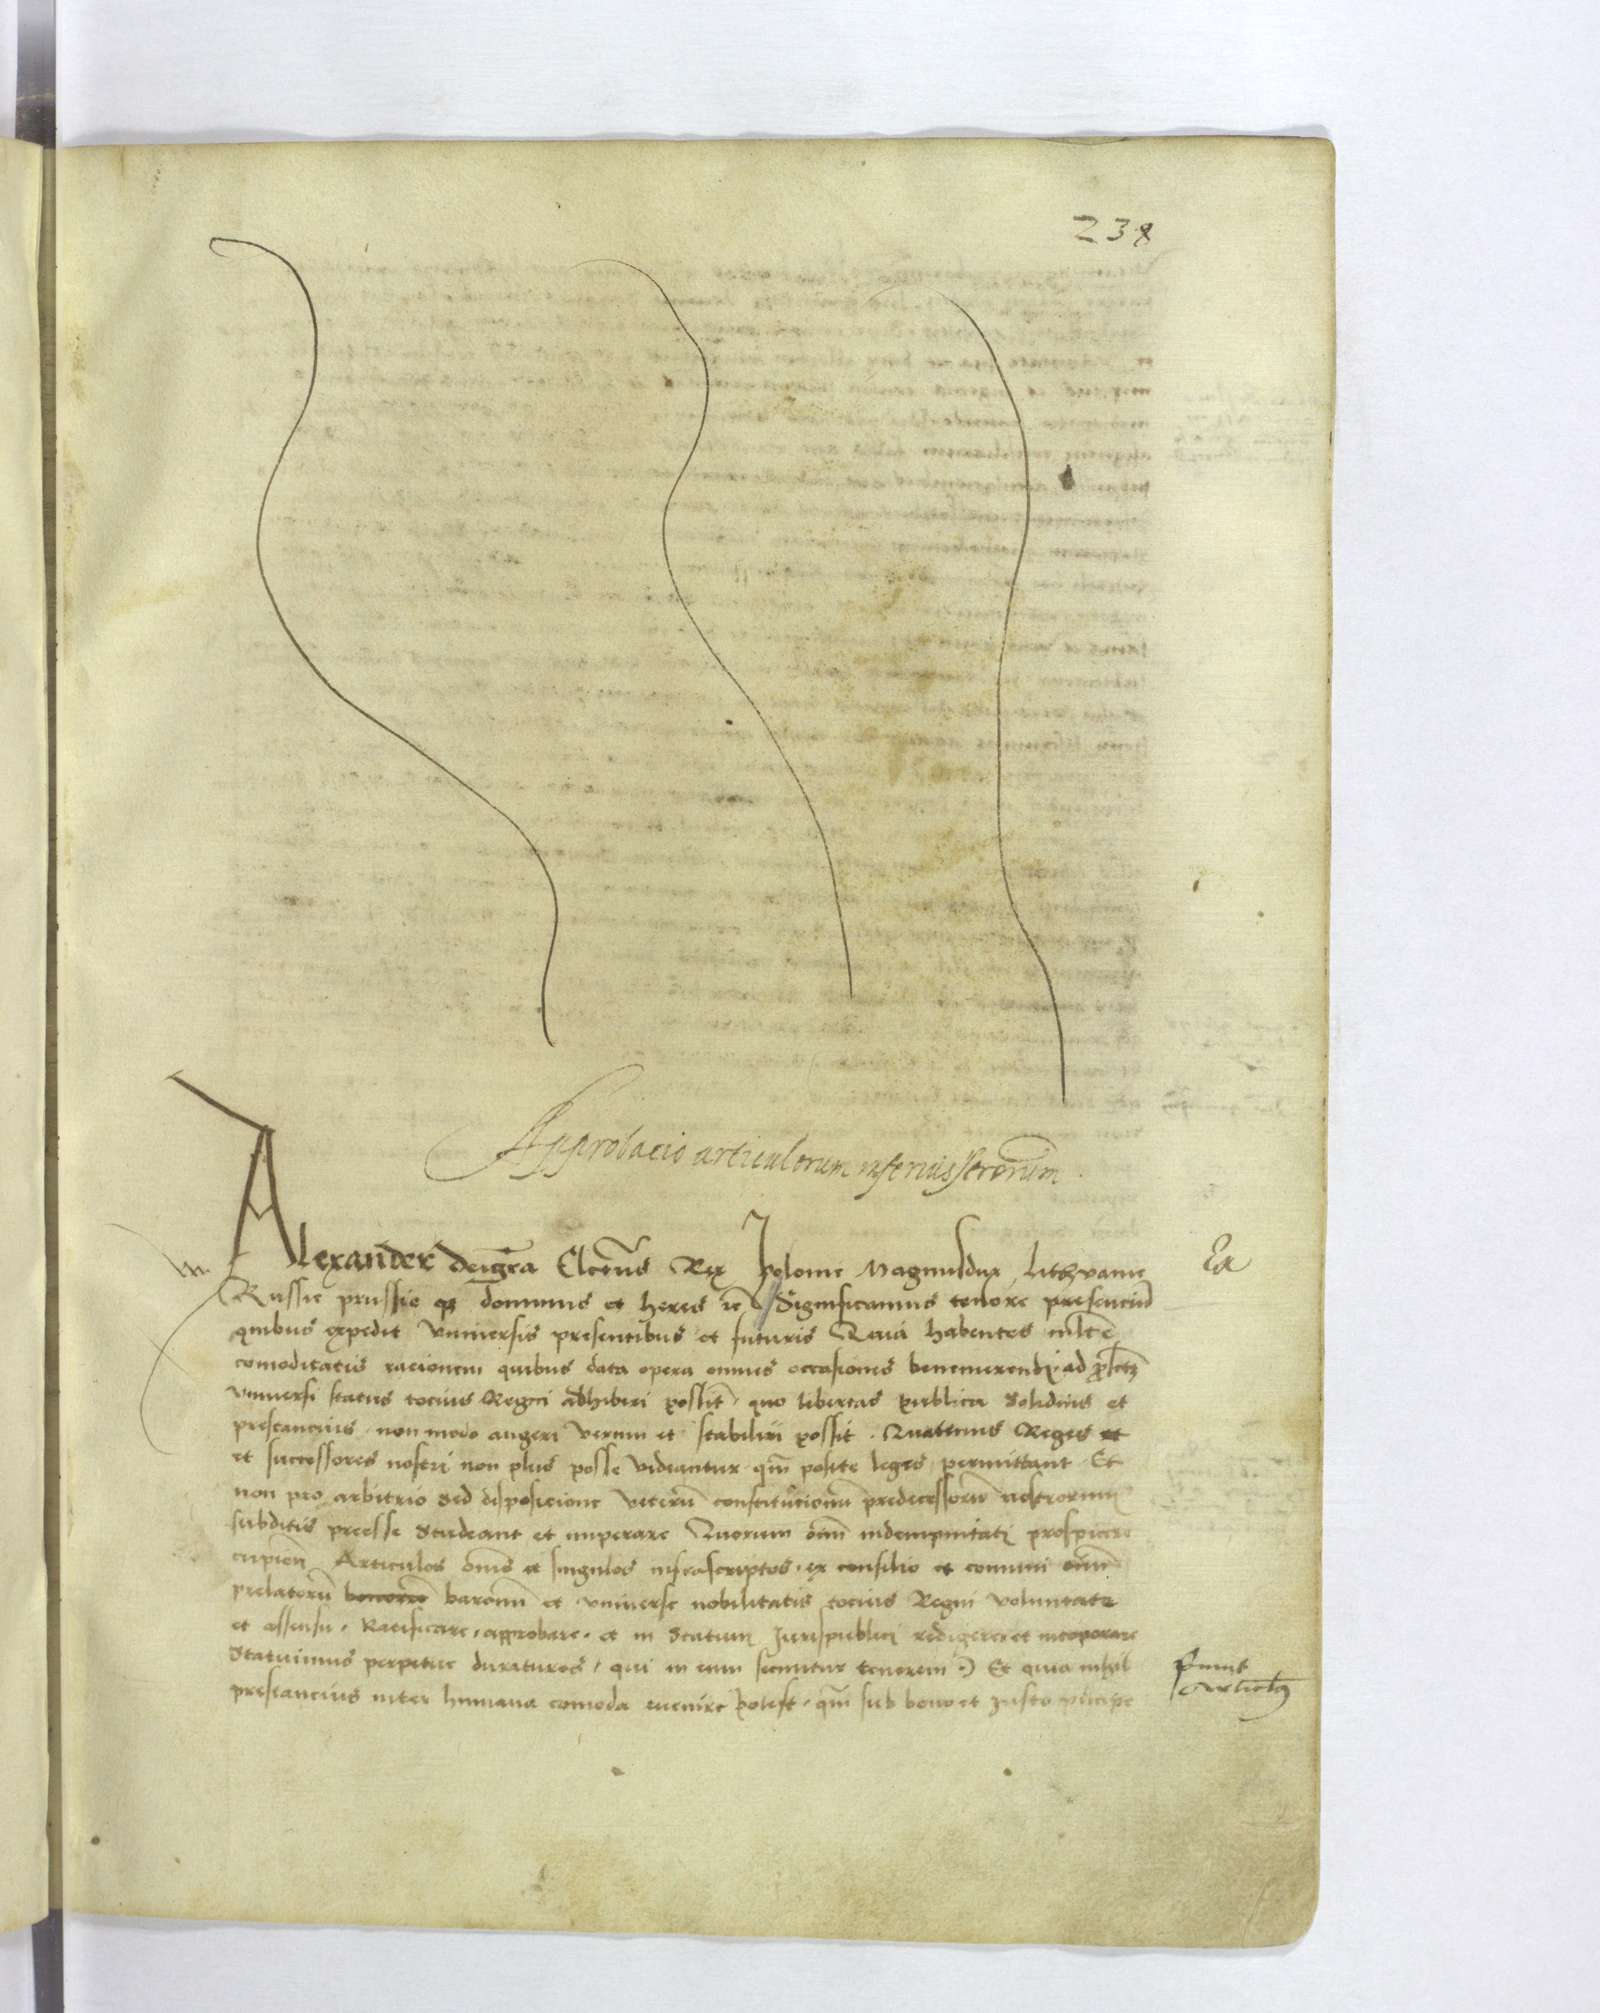 238
Approbacio articulorum inferius scrorum
Alexander dei gra Electus Rex polonie Magnusdux Lithvanie
Russie prussie q3 dominus et heres zc Significamus tenore presenciu
quibus expedit Vniversis presentibus et futuris Quia habentes
comoditatis racionem quibus data opera omnes occasiones benemerendi ad
vniversi status tocius Regni adhiberi possit quo libertas publica solidius et
prestancius non modo augeri verum et stabiliri possit. Quatenus Reges et
et successores nostri non plus posse videantur qm posite leges permittant Et
non pro arbitrio sed disposicione veteru constitucionu predecessoru nostrorum
subditis preesse studeant et imperare Quorum oim indempnitati prospicere
cupien Articulos oms et singulos infrascriptos ex consilio et comuni oim
prelatoru baronu et vniverse nobilitatis tocius Regni voluntate
et assensu. Ratificare. approbare. et in statum Jurispublici redigere et incoporare
Statuimus perpetue duraturos, qui in eum secuntur tenorem Et quia nihil
prestancius inter humana comoda evenire potest. qm sub bono et Justo principe